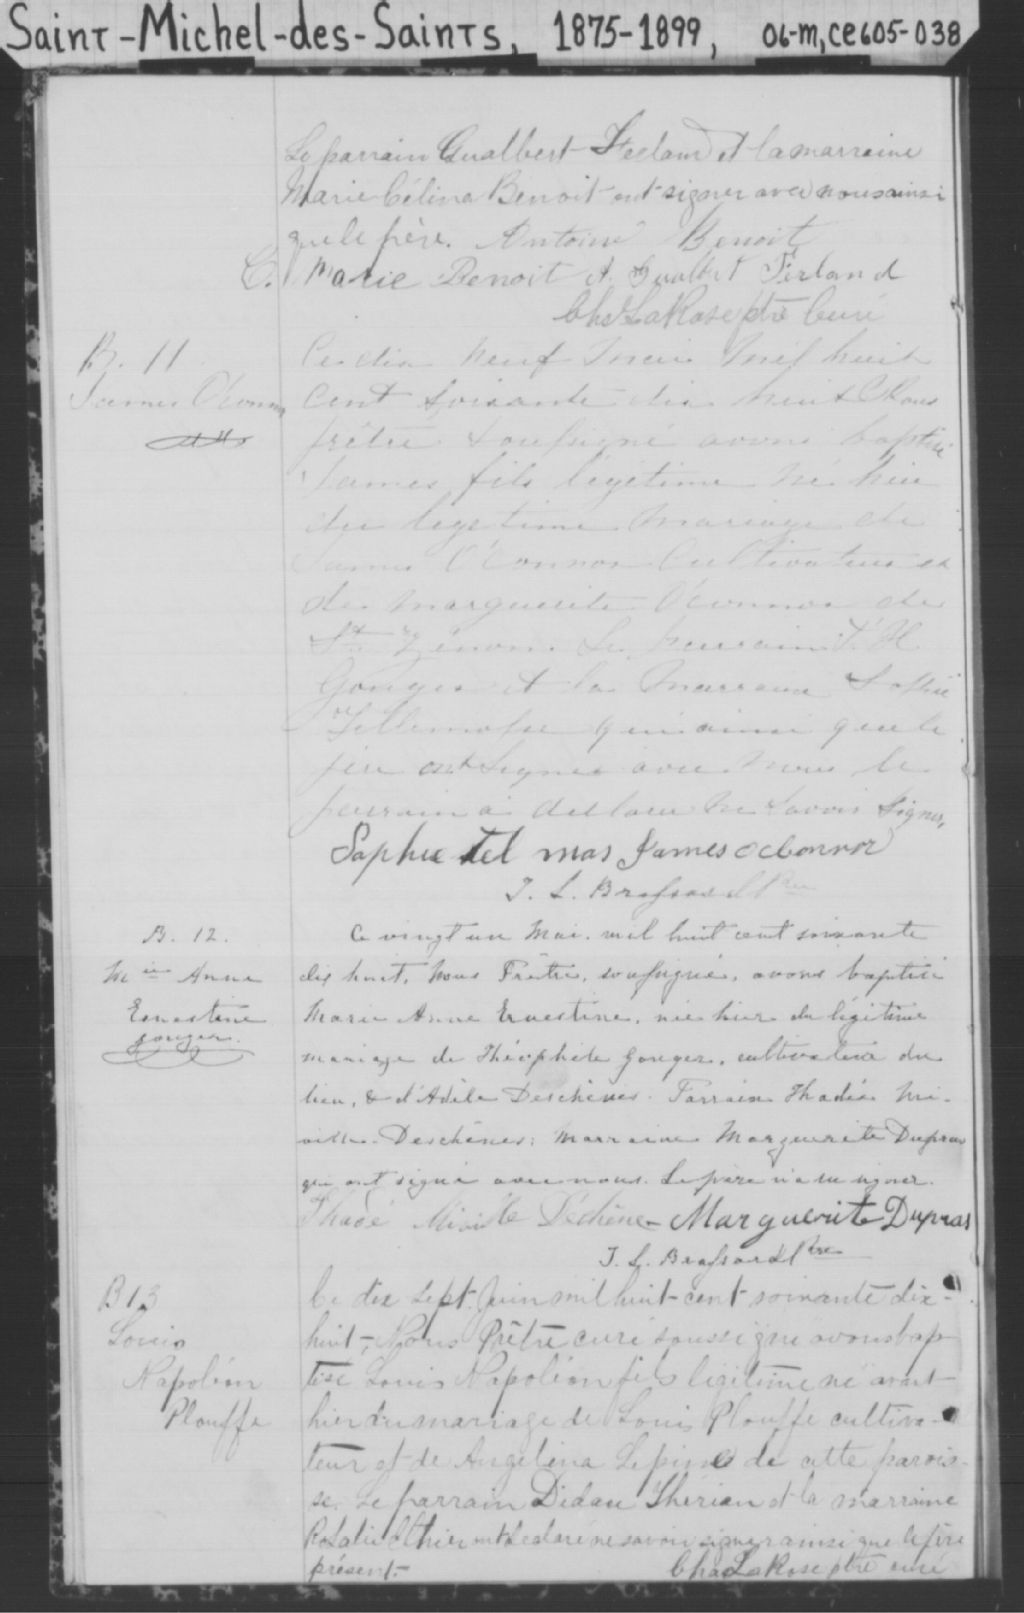 Saint-Michel-des-Saints, 1875-1899, 06-M, CE605-038
Le parrain Gualbert Ferland et la marraine
Marie Célina Benoit ont signer avec nous ainsi
que le père. Antoine Benoit
C. Marie Benoit A. Gualbert Ferland
Chs LaRose ptre Curé
B. 11
James O'Connor
Ce dix neuf mai mil huit
cent soixante dix huit Nous
prêtre soussigné avons baptisé
James fils légitime né hier
du légitime mariage de
James O'Connor Cultivateur et
de Marguerite O'Connor de
St Zénon. Le parrain T. H.
Gouger et la marraine Sophie
Tellemosse qui ainsi que le
père ont signer avec nous le
parrain a déclaré ne savoir signer,
Sophie tel mas James oConnor
T. L. Brassard Ptre
B. 12.
Mie Anne
Ernestine
gouger.
Ce vingt un Mai mil huit cent soixante
dix huit, Nous Prêtre, soussigné, avons baptisé
Marie Anne Ernestine, née hier du légitime
mariage de Théophile Gouger, cultivateur du
lieu, & d'Adèle Deschênes. Parrain Thadée Mi-
ville-Deschênes; Marraine Marguerite Dupras
qui ont signé avec nous. Le père n'a su signer.
Thadé Miville Déchêne - Marguerite Dupras
T. L. Brassard Ptre
B13
Louis
Napoléon
Plouffe
Ce dix sept Juin mil huit-cent soixante dix-
huit, Nous Prêtre curé soussigné avons bap
tisé Louis Napoléon fils légitime né avant
hier du mariage de Louis Plouffe cultiva-
teur et de Angelina Lepine de cette parois-
se. Le parrain Didau Thérien et la marraine
Rosalie Ethier ont déclaré ne savoir signer ainsi que le père
présent.- Chs LaRose ptre curé